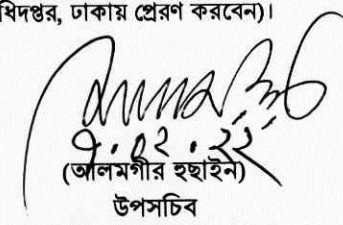 ধিদপ্তর, ঢাকায় প্রেরণ করবেন)।
৭.০২.২২
(আলমগীর হুছাইন)
উপসচিব